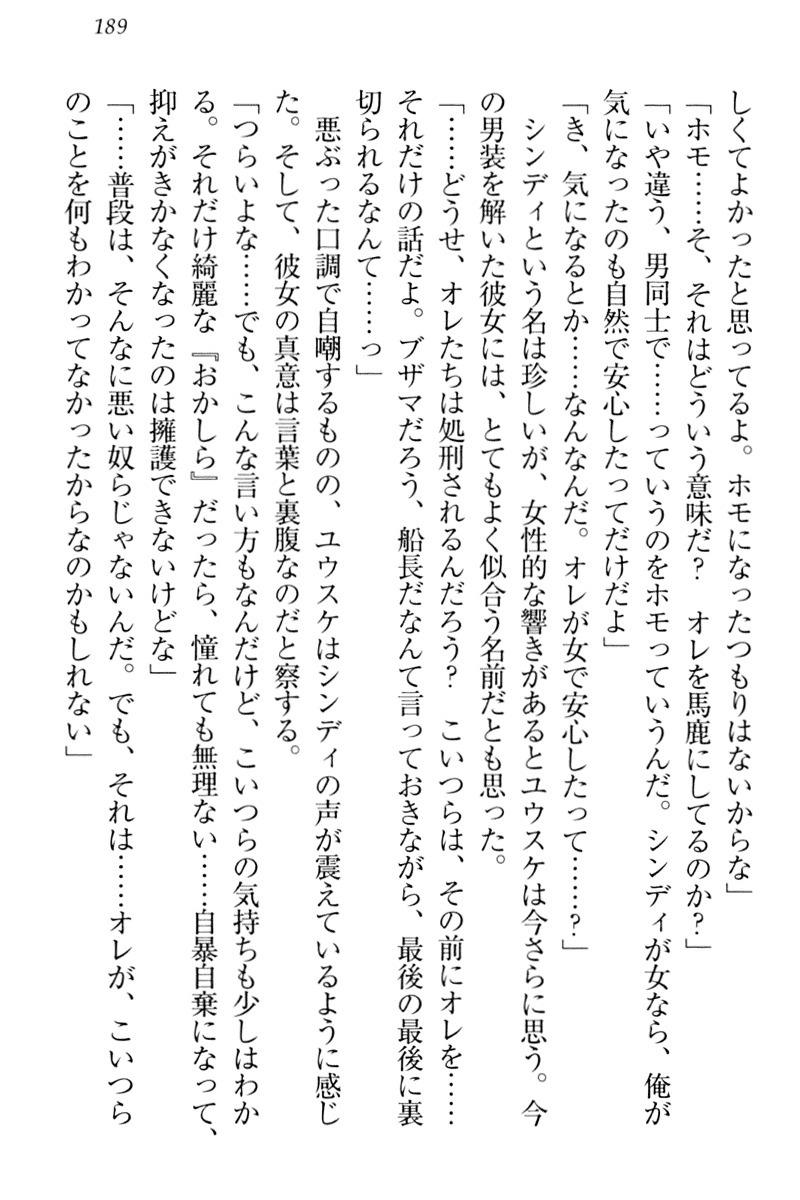 189
しくてよかったと思ってるよ。ホモになったつもりはないからな」
「ホモ……そ、それはどういう意味だ？　オレを馬鹿にしてるのか？」
「いや違う、男同士で……っていうのをホモっていうんだ。シンディが女なら、俺が
気になったのも自然で安心したってだけだよ」
「き、気になるとか……なんなんだ。オレが女で安心したって……？」
　シンディという名は珍しいが、女性的な響きがあるとユウスケは今さらに思う。今
の男装を解いた彼女には、とてもよく似合う名前だとも思った。
「……どうせ、オレたちは処刑されるんだろう？　こいつらは、その前にオレを……
それだけの話だよ。ブザマだろう、船長だなんて言っておきながら、最後の最後に裏
切られるなんて……っ」
　悪ぶった口調で自嘲するものの、ユウスケはシンディの声が震えているように感じ
た。そして、彼女の真意は言葉と裏腹なのだと察する。
「つらいよな……でも、こんな言い方もなんだけど、こいつらの気持ちも少しはわか
る。それだけ綺麗な『おかしら』だったら、憧れても無理ない……自暴自棄になって、
抑えがきかなくなったのは擁護できないけどな」
「……普段は、そんなに悪い奴らじゃないんだ。でも、それは……オレが、こいつら
のことを何もわかってなかったからなのかもしれない」